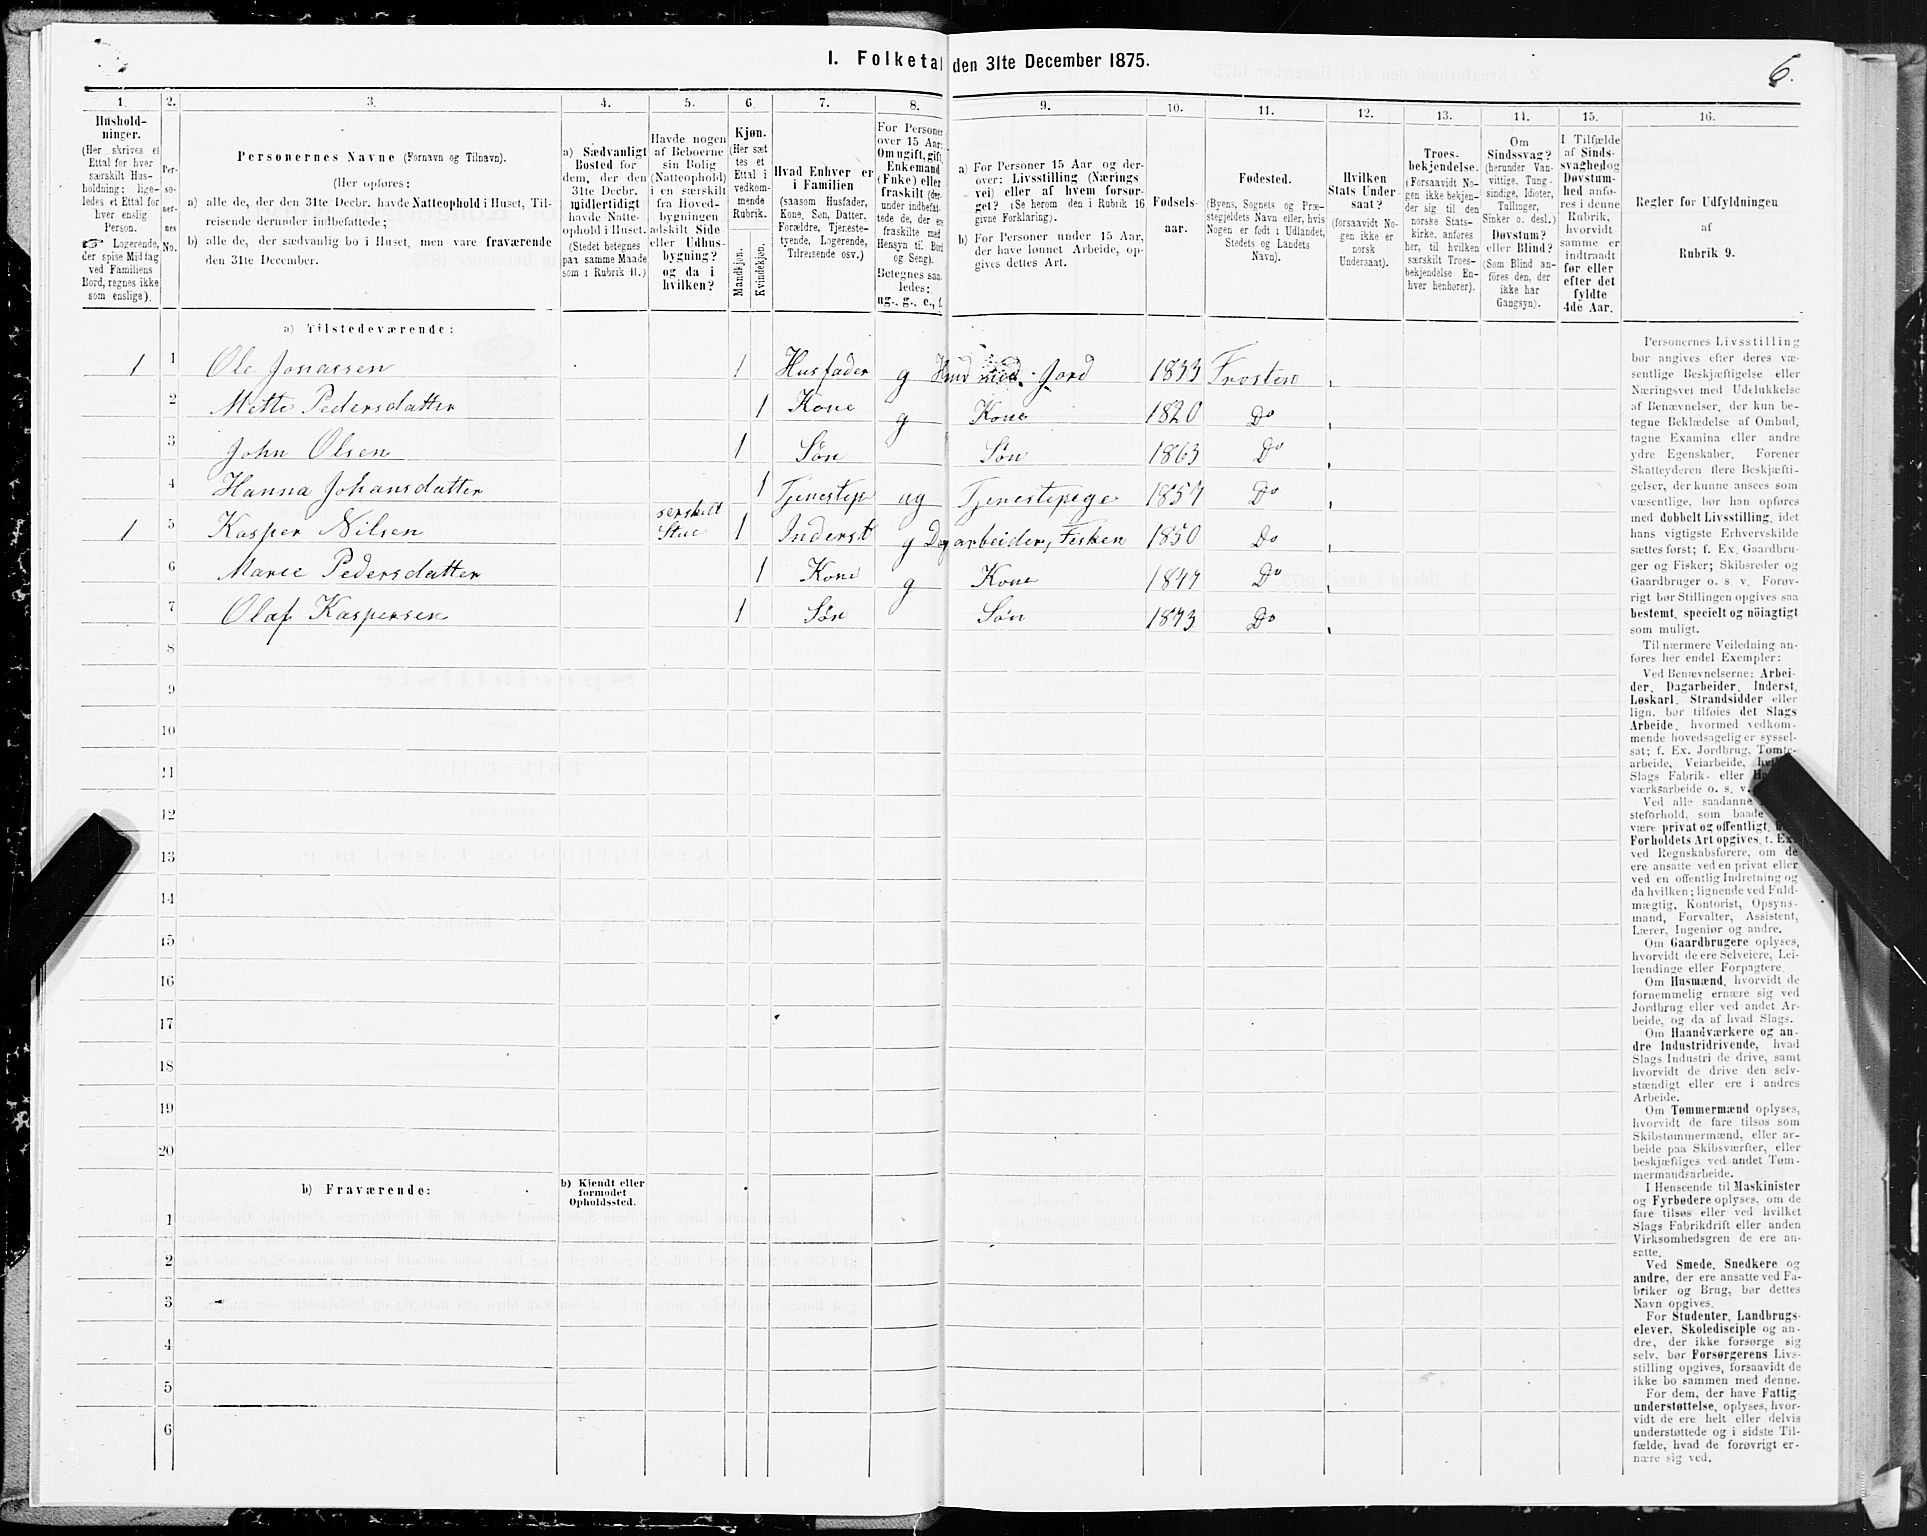 1. Folketal den 31te December 1875.
6.
1.
2.
3.
4.
5.
6.
7.
8.
9.
10.
11.
12.
13.
14.
15.
16.
Hushold-
ninger.
(Her skrives et
Ettal for hver
særskilt Hus-
holdning; lige-
ledes et Ettal for
hver enslig
Person.
☞ Logerende,
der spise Middag
ved Familiens
Bord, regnes ikke
som enslige).
Per-
so-
ner-
nes
No.
Personernes Navne (Fornavn og Tilnavn).
(Her opføres:
a) alle de, der den 31te Decbr. havde Natteophold i Huset, Til-
reisende derunder indbefattede;
b) alle de, der sædvanlig bo i Huset, men vare fraværende
den 31te December.
a) Sædvanligt
Bosted for
dem, der den
31te Decbr.
midlertidigt
havde Natte-
ophold i Huset.
(Stedet betegnes
paa samme Maade
som i Rubrik 11.)
Havde nogen
af Beboerne
sin Bolig
(Natteophold)
i en særskilt
fra Hoved-
bygningen
adskilt Side
eller Udhus-
bygning?
og da i
hvilken?
Kjøn.
(Her sæt
tes et
Ettal i
vedkom-
mende
Rubrik.
Mandkjøn.
Kvindekjøn.
Hvad Enhver er
i Familien
(saasom Husfader,
Kone, Søn, Datter,
Forældre, Tjeneste-
tyende, Logerende,
Tilreisende osv.)
For Personer
over 15 Aar:
Om ugift, gift,
Enkemand
(Enke) eller
fraskilt (der-
under indbefat-
tede de, der ere
fraskilte med
Hensyn til Bord
og Seng).
Betegnes saa-
ledes:
ug., g., e., f.
a) For Personer 15 Aar og der-
over: Livsstilling (Nærings-
vei) eller af hvem forsør-
get? (Se herom den i Rubrik 16
givne Forklaring).
b) For Personer under 15 Aar,
der have lønnet Arbeide, op-
gives dettes Art.
Fødsels-
aar.
Fødested.
(Byens, Sognets og Præ-
stegjeldets Navn eller, hvis
Nogen er født i Udlandet,
Stedets og Landets
Navn).
Hvilken
Stats Under-
saat?
(forsaavidt No-
gen ikke er
norsk
Undersaat).
Troes-
bekjendelse.
(Forsaavidt No-
gen ikke bekjen-
der sig til den
norske Stats-
kirke, anføres
her, til hvilken
særskilt Troes-
bekjendelse En-
hver henhører).
Om
Sindssvag?
(herunder Van-
vittige, Tung-
sindige, Idioter,
Tullinger,
Sinker o. desl.)
Døvstum?
eller Blind?
(Som Blind an-
føres den, der
ikke har
Gangsyn).
I Tilfælde
af Sinds-
svaghed og
Døvstum-
hed anfø-
res i denne
Rubrik,
hvorvidt
samme er
indtraadt
før eller
efter det
fyldte
4de Aar.
Regler for Udfyldningen
af
Rubrik 9.
a) Tilstedeværende:
1 1 Ole Jonassen 1 Husfader g Husmd med Jord 1833 Frosten
2 Mette Pedersdatter 1 Kone g Kone 1820 Do
3 John Olsen 1 Søn Søn 1863 Do
4 Hanna Johansdatter 1 Tjenestep ug Tjenestepige 1857 Do
1 5 Kasper Nilsen serskilt Stue 1 Inderst g Dagarbeider, Fisken 1850 Do
6 Maree Pedersdatter 1 Kone g Kone 1847 Do
7 Olaf Kaspersen 1 Søn Søn 1873 Do
8
9
10
11
12
13
14
15
16
17
18
19
20
b) Fraværende:
b) Kjendt eller
formodet
Opholdssted.
1
2
3
4
5
6
Personernes Livsstilling
bør angives efter deres væ-
sentlige Beskjæftigelse eller
Næringsvei med Udelukkelse
af Benævnelser, der kun be-
tegne Beklædelse af Ombud,
tagne Examina eller andre
ydre Egenskaber. Forener
Skatteyderen flere Beskjæfti-
gelser, der kunne ansees som
væsentlige, bør han opføres
med dobbelt Livsstilling, idet
hans vigtigste Erhvervskilde
sættes først; f. Ex. Gaardbru-
ger og Fisker; Skibsreder og
Gaardbruger o. s. v. Forøv-
rigt bør Stillingen opgives saa
bestemt, specielt og nöiagtigt
som muligt.
Til nærmere Veiledning an-
føres her endel Exempler:
Ved Benævnelserne: Arbei-
der, Dagarbeider, Inderst,
Løskarl, Strandsidder eller
lign. bør tilføies det Slags
Arbeide, hvormed vedkom-
mende hovedsagelig er syssel-
sat; f. Ex. Jordbrug, Tømte-
arbeide, Veiarbeide,
Slags Fabrik- eller
værksarbeide o. s. v.
Ved alle saadanne
steforhold, som baade
være privat og offentligt,
Forholdets Art opgives, t. Ex.
ved Regnskabsførere, om de
ere ansatte ved en privat eller
ved en offentlig Indretning og
da hvilken; lignende ved Fuld-
mægtig, Kontorist, Opsyns-
mand, Forvalter, Assistent,
Lærer, Ingeniør og andre.
Om Gaardbrugere oplyses,
hvorvidt de ere Selveiere, Lei-
lændinge eller Forpagtere.
Om Husmænd, hvorvidt de
fornemmelig ernære sig ved
Jordbrug eller ved andet Ar-
beide, og da af hvad Slags.
Om Haandværkere og an-
dre Industridrivende, hvad
Slags Industri de drive, samt
hvorvidt de drive den selv-
stændigt eller ere i andres
Arbeide.
Om Tømmermænd oplyses,
hvorvidt de fare tilsøs som
Skibstømmermænd, eller ar-
beide paa Skibsværfter, eller
beskjæftiges ved andet Tøm-
mermandsarbeide.
I Henseende til Maskinister
og Fyrbødere oplyses, om de
fare tilsøs eller ved hvilket
Slags Fabrikdrift eller anden
Virksomhedsgren de ere an-
satte.
Ved Smede, Snedkere og
andre, der ere ansatte ved Fa-
briker og Brug, bør dettes
Navn opgives.
For Studenter, Landbrugs-
elever, Skoledisciple og an-
dre, der ikke forsørge sig
selv, bør Forsørgerens Livs-
stilling opgives, forsaavidt de
ikke bo sammen med denne.
For dem, der have Fattig-
understøttelse, oplyses, hvor-
vidt de ere helt eller delvis
understøttede og i sidste Til-
fælde, hvad de forøvrigt er-
nære sig ved.